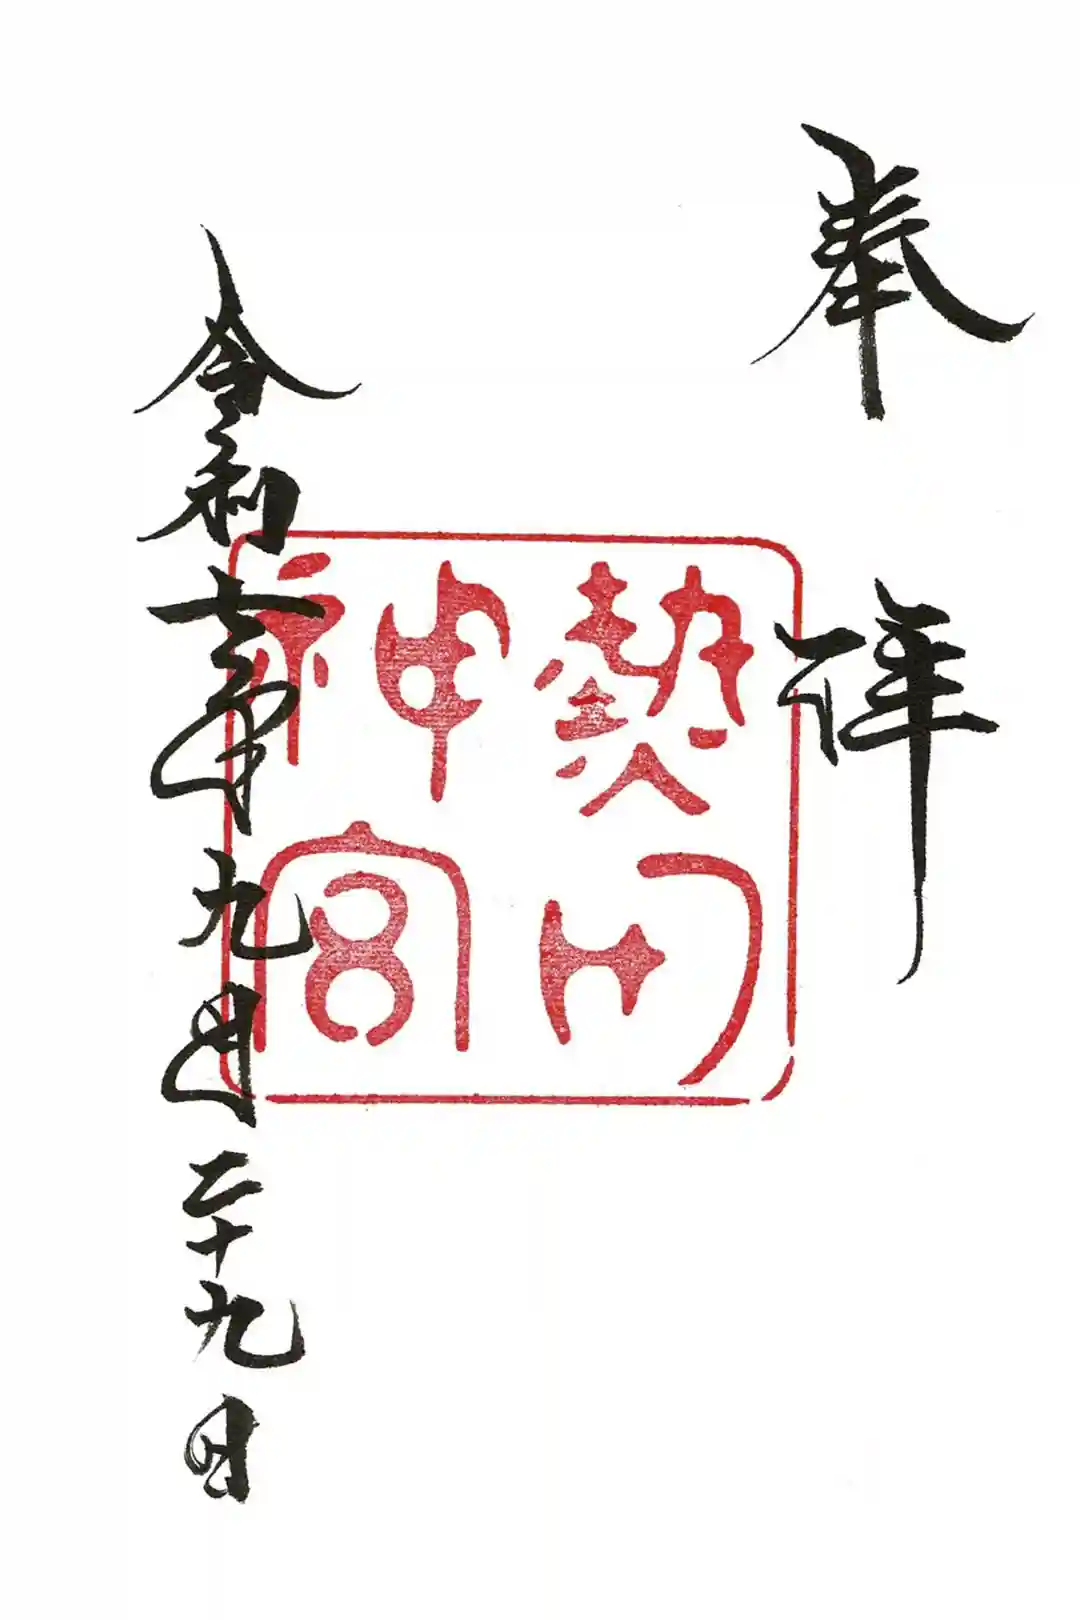 奉拝
熱田
神宮
令和六年九月二十九日